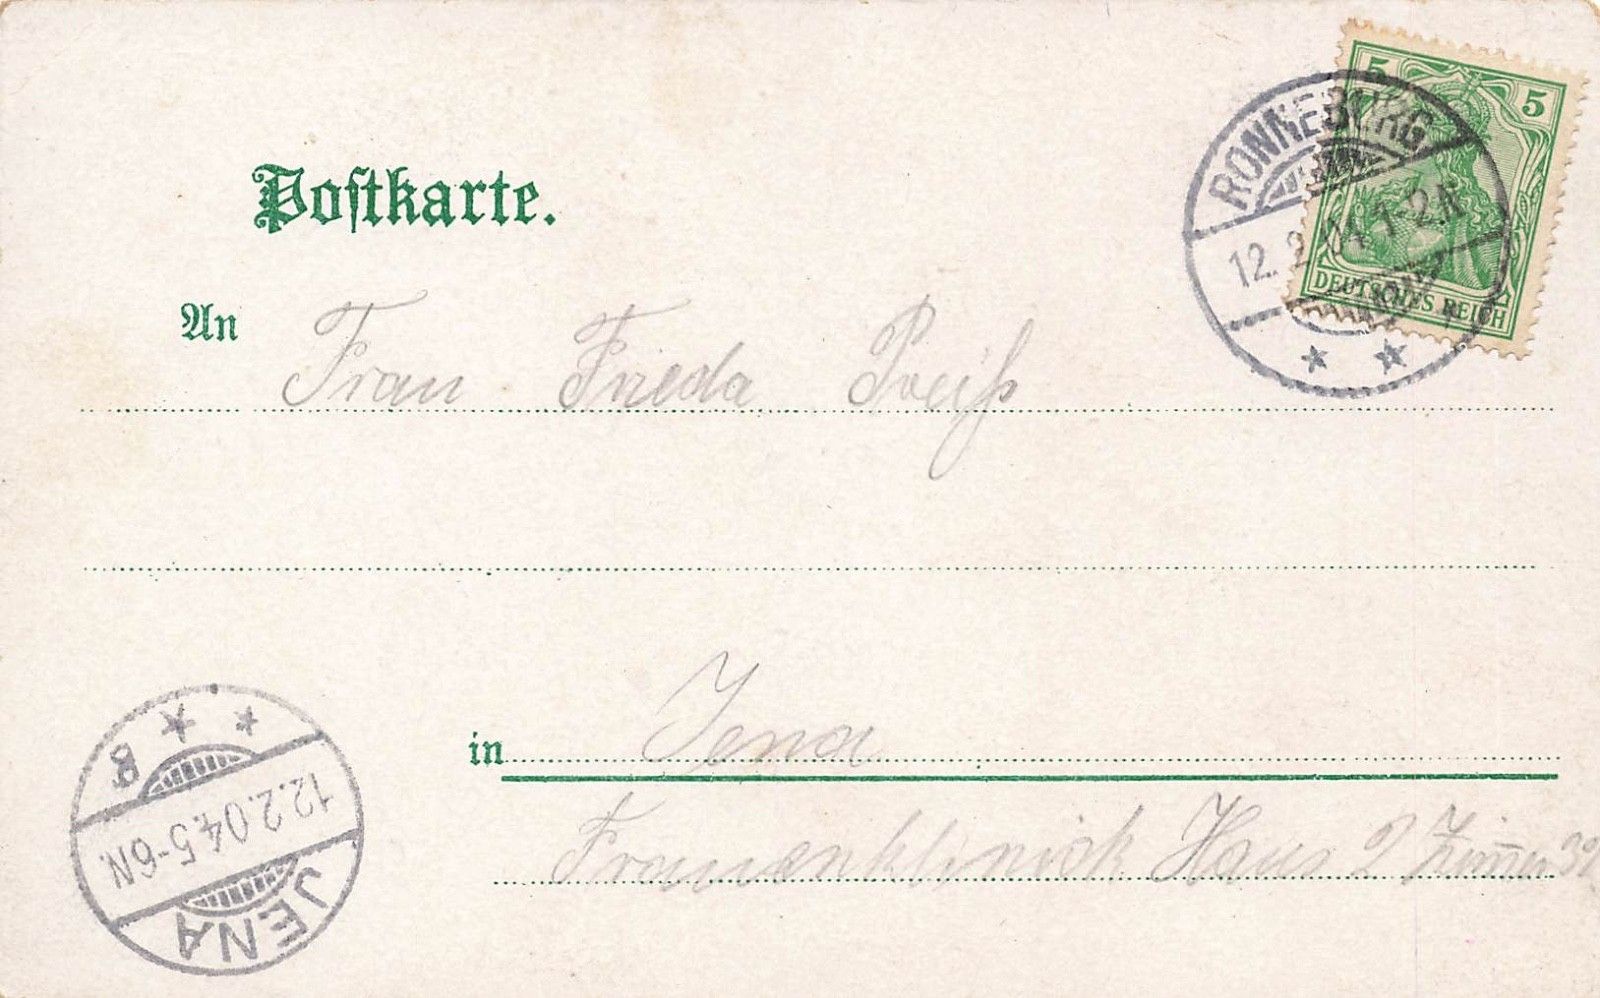 Postkarte.
5 5
DEUTSCHES REICH
RONNEBURG
12. 2. 04. 1-2N.
An Frau Frieda Preiß
in Jena
Frauenklinick Haus 2 Zimmer
JENA
12.2.04.5-6N.